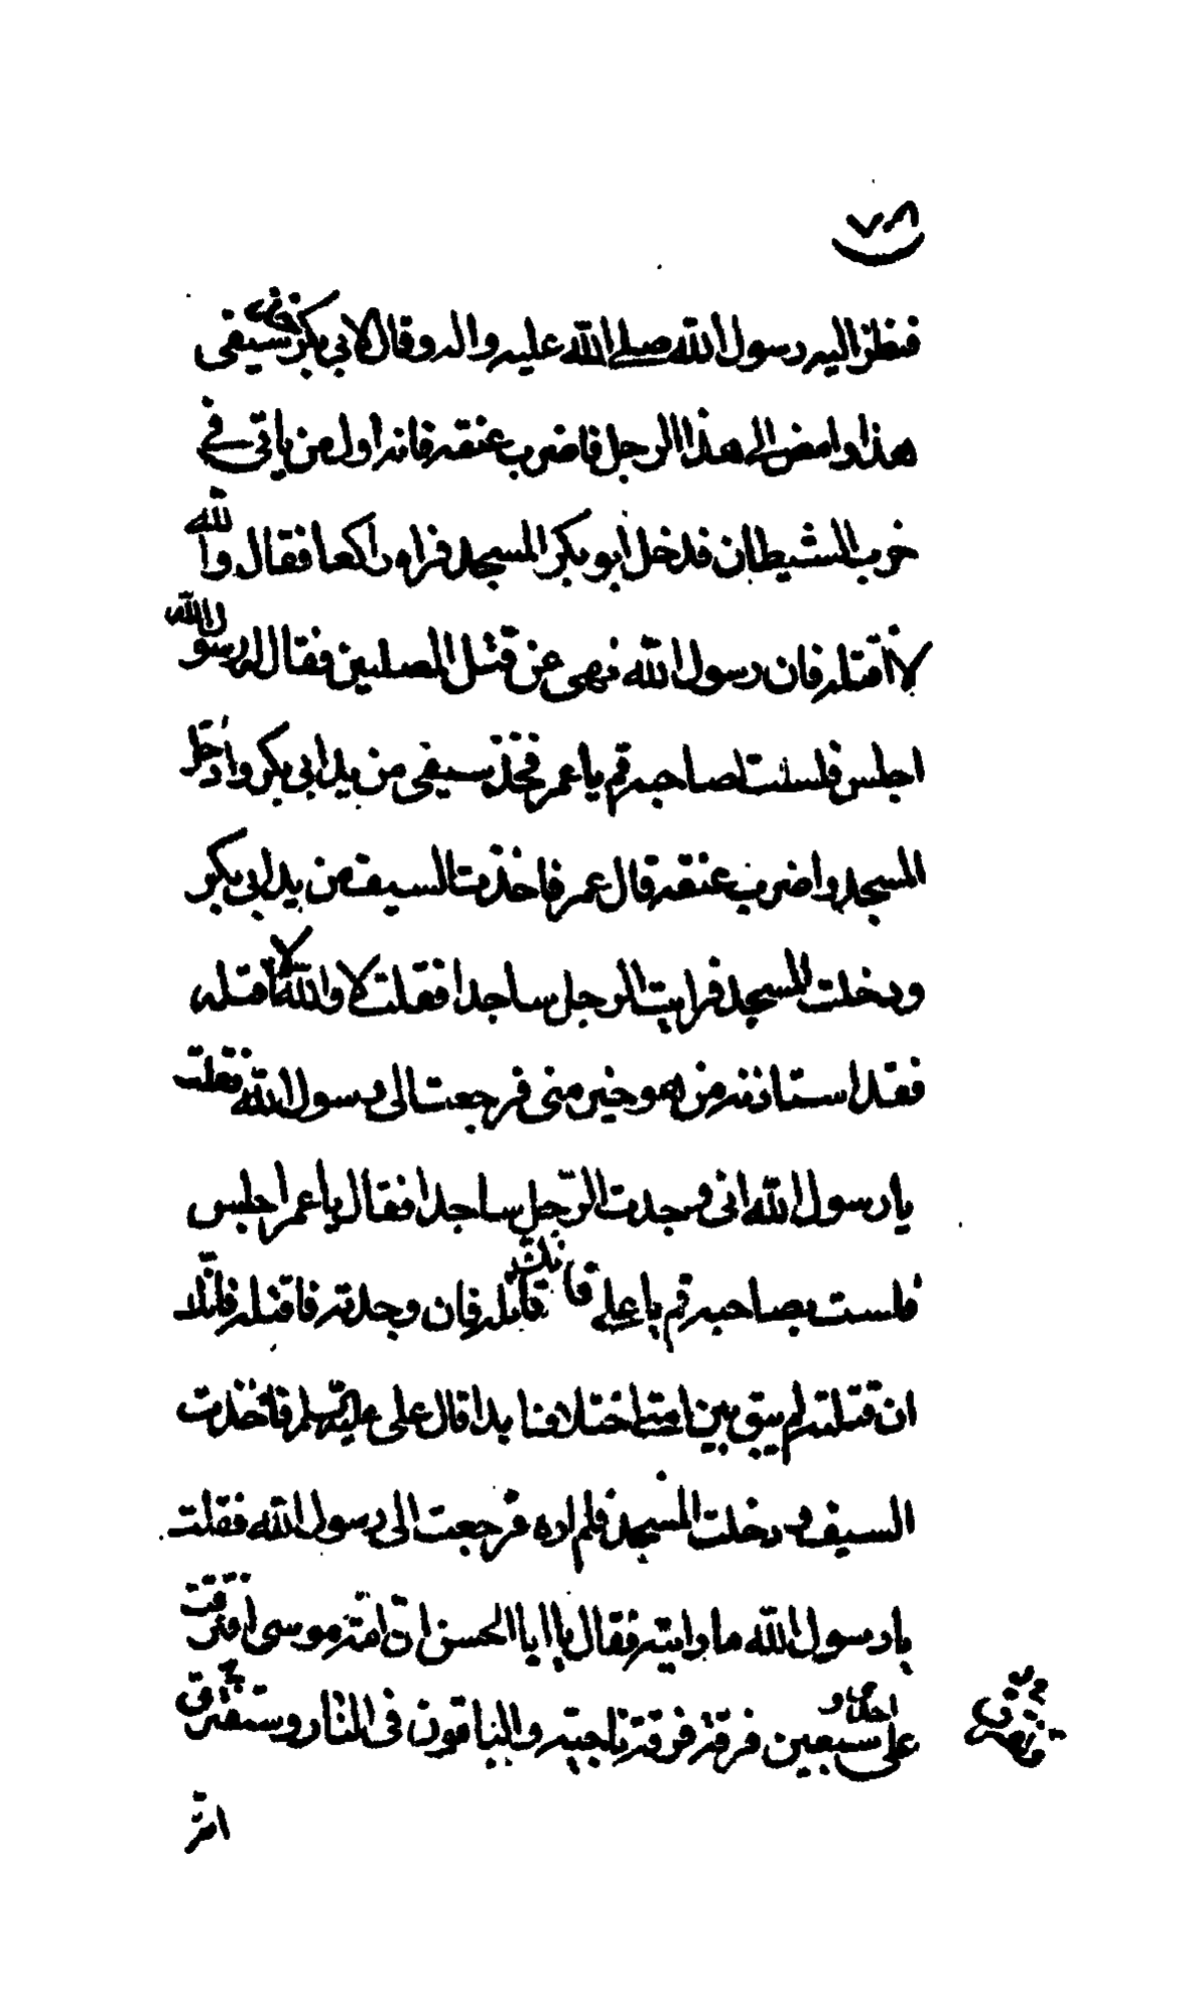 ٧٨
فنظر اليه رسول الله صلى الله عليه واله وقال لابي بكر خذ سيفي
هذا وامض الى هذا الرجل فاضرب عنقه فانه اول من ياتي في
حزب الشيطان فدخل ابو بكر المسجد فراه راكعا فقال والله
لا اقتله فان رسول الله نهى عن قتل المصلين فقال له رسول الله
اجلس فلست لصاحبه قم يا عمر فخذ سيفي من يد ابي بكر وادخل
المسجد واضرب عنقه قال عمر فاخذت السيف من يد ابي بكر
ودخلت المسجد فرايت الرجل ساجدا فقلت لا والله لا اقتله
فقد استاذنه من هو خير مني فرجعت الى رسول الله فقلت
يا رسول الله اني وجدت الرّجل ساجدا فقال يا عمر اجلس
فلست بصاحبه قم يا علي فانك قاتله فان وجدته فاقتله فانك
ان قتلته لم يبق بين امتي اختلاف ابدا قال علي عليه السلم فاخذت
السيف ودخلت المسجد فلم اره فرجعت الى رسول الله فقلت
يا رسول الله ما رايته فقال يا ابا الحسن انّ امّة موسى افترقت
على احدى و سبعين فرقة فرقة ناجية والباقون في النار وستفترق
امّتي